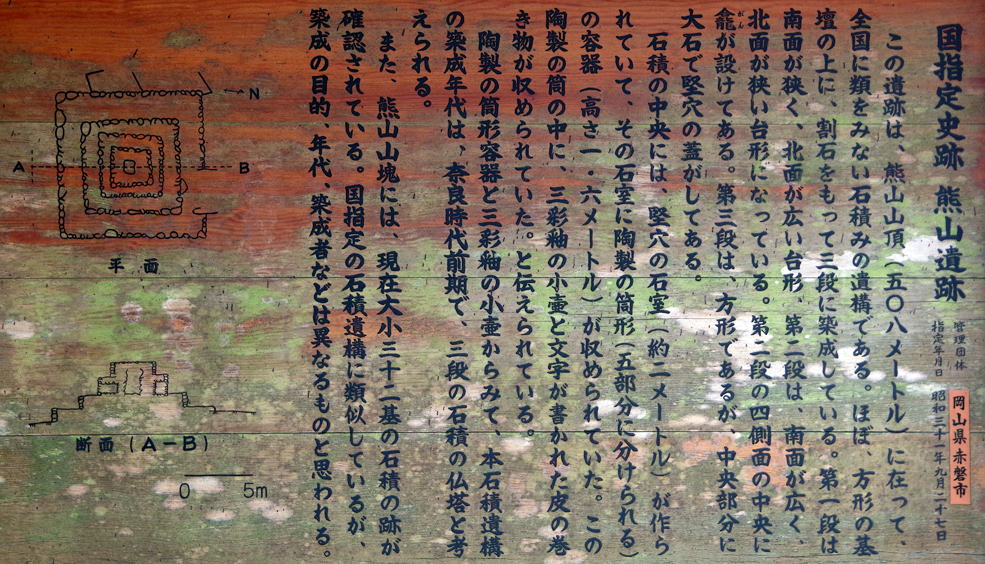 国指定史跡 熊山遺跡
管理団体 岡山県赤磐市
指定年月日 昭和三十一年九月二十七日
この遺跡は、熊山山頂(五〇八メートル)に在って、
全国に類をみない石積みの遺構である。ほぼ、方形の基
壇の上に、割石をもって三段に築成している。第一段は
南面が狭く、北面が広い台形、第二段は、南面が広く、
北面が狭い台形になっている。第二段の四側面の中央に
龕が設けてある。第三段は、方形であるが、中央部分に
がん
大石で竪穴の蓋がしてある。
石積の中央には、竪穴の石室(約二メートル)が作ら
れていて、その石室に陶製の筒形(五部分に分けられる)
の容器(高さ一・六メートル)が収められていた。この
陶製の筒の中に、三彩釉の小壷と文字が書かれた皮の巻
き物が収められていた。と伝えられている。
陶製の筒形容器と三彩釉の小壷からみて、本石積遺構
の築成年代は、奈良時代前期で、三段の石積の仏塔と考
えられる。
また、熊山山塊には、現在大小三十二基の石積の跡が
確認されている。国指定の石積遺構に類似しているが、
築成の目的、年代、築成者などは異なるものと思われる。
N
A B
平面
断面(A-B)
0 5m